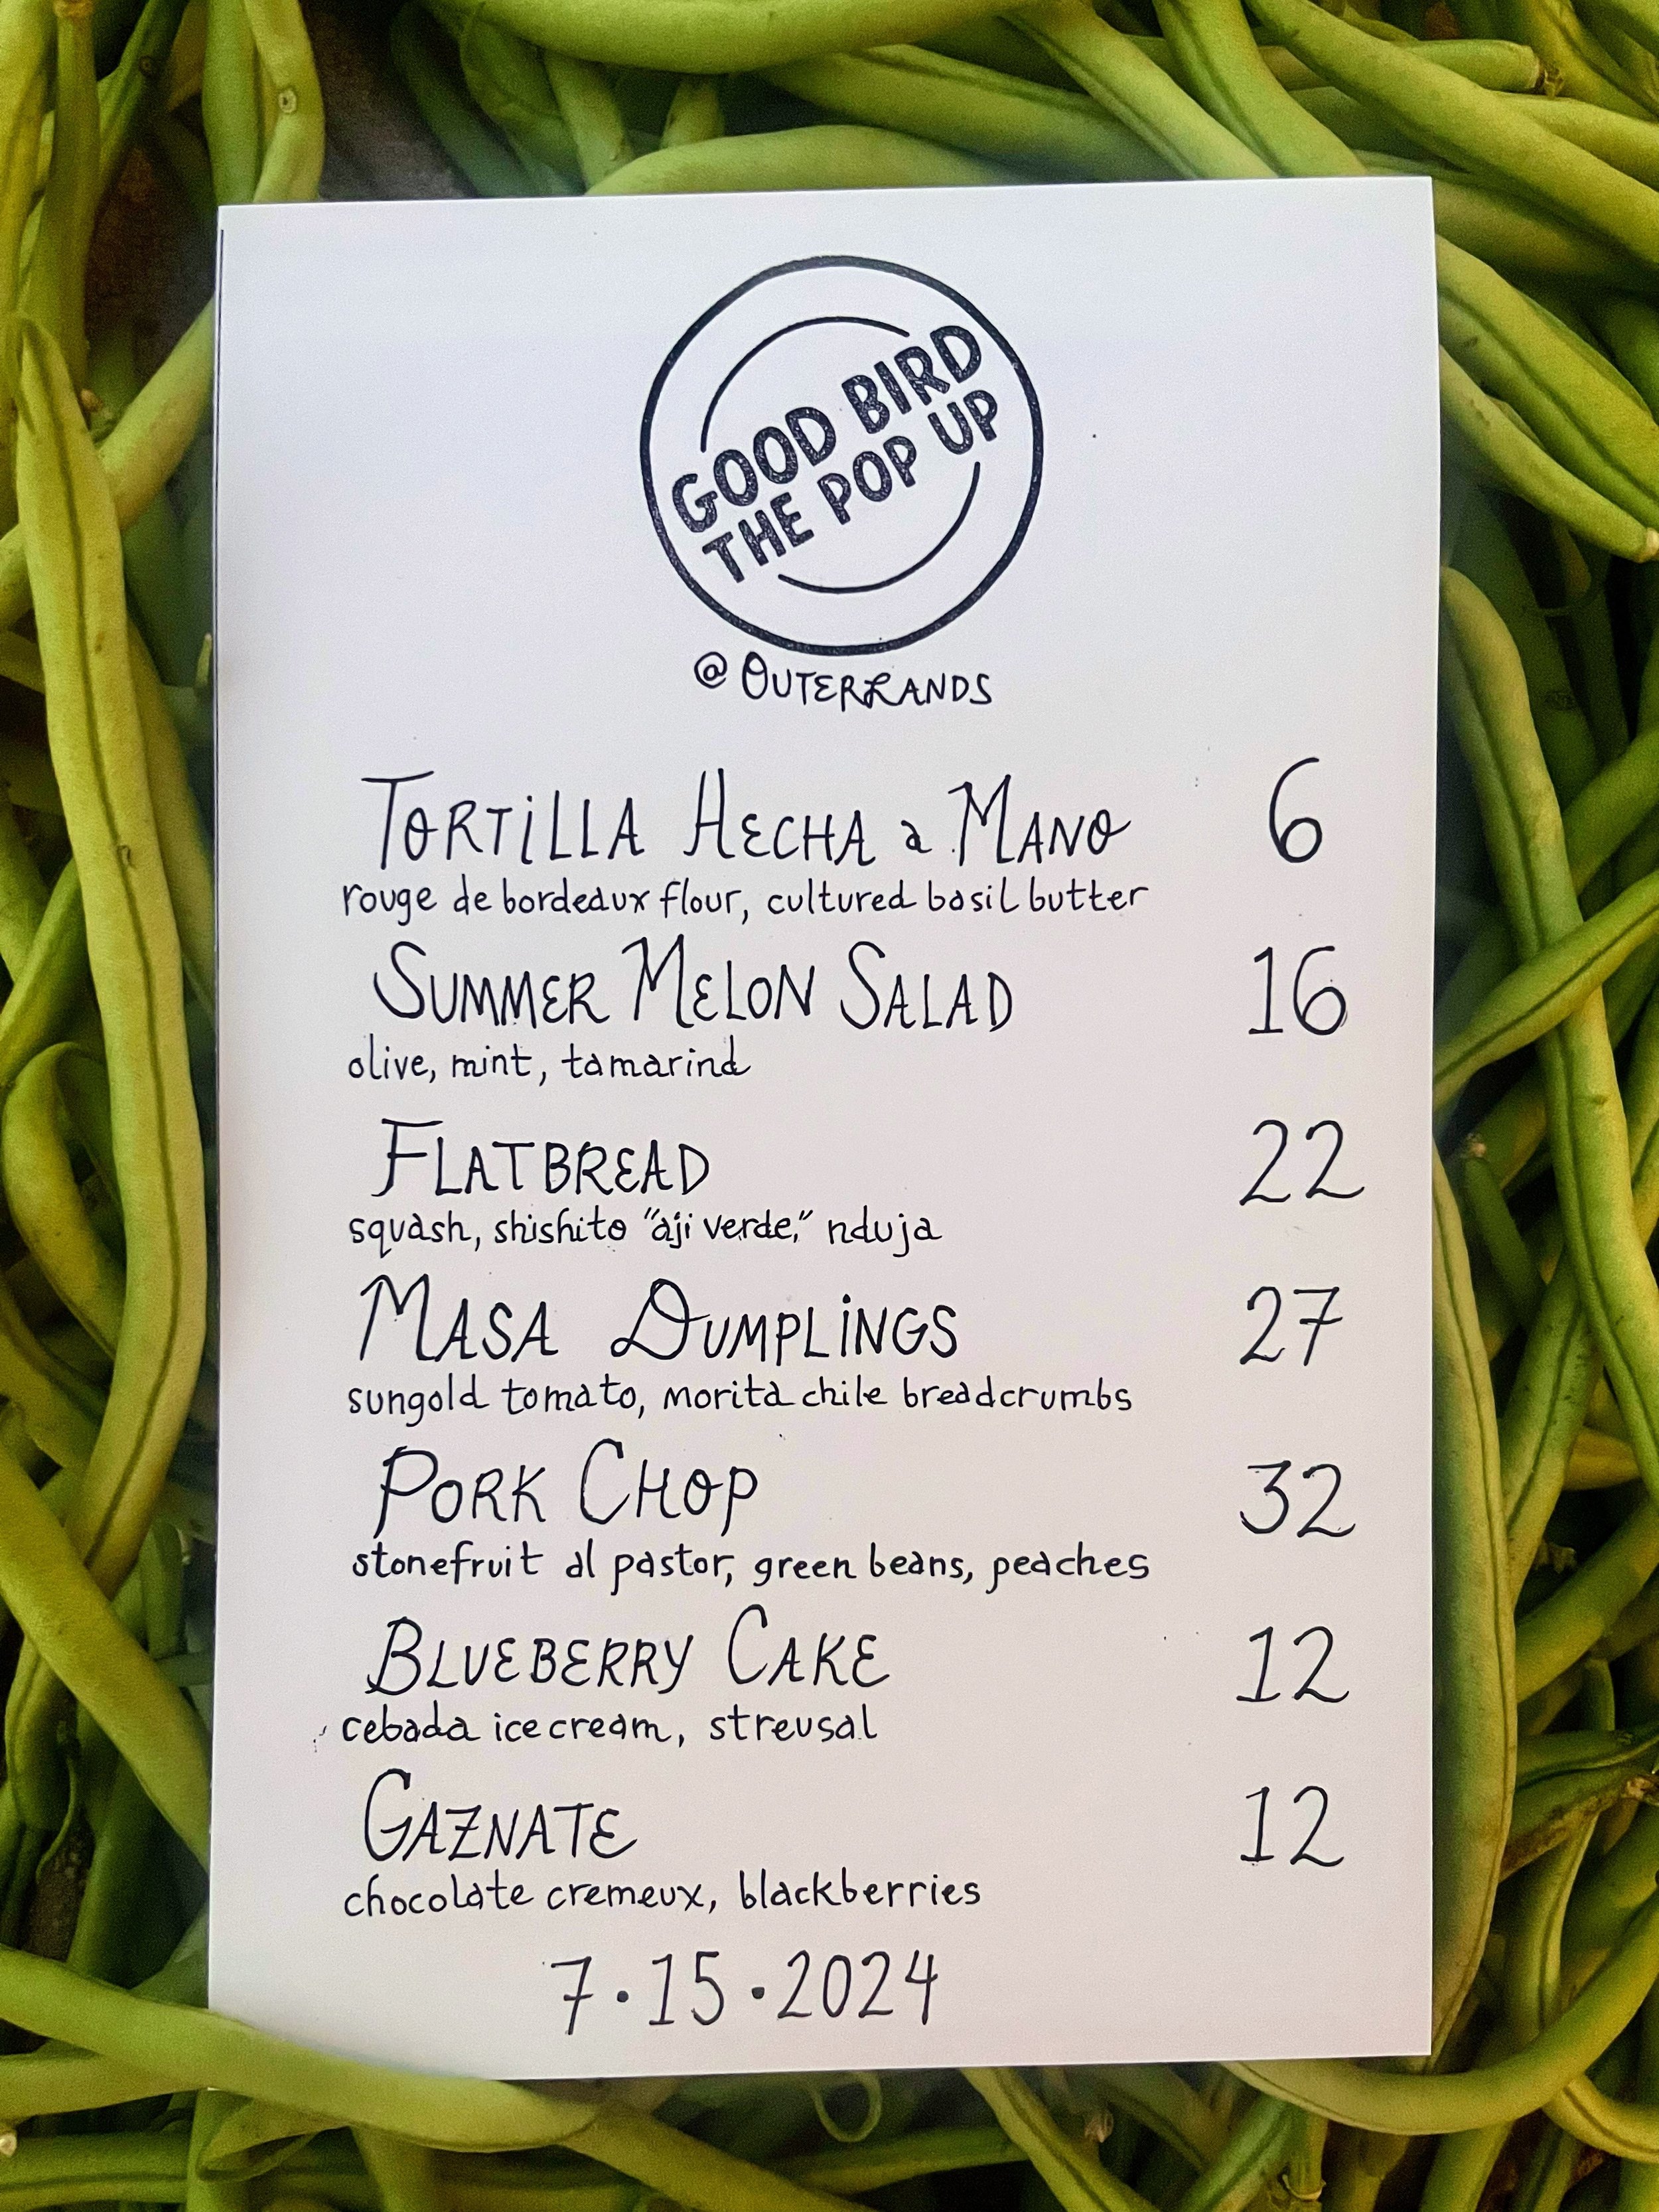 GOOD BIRD
THE POP UP
@ OUTERLANDS
TORTILLA HECHA a MANO 6
rouge de bordeaux flour, cultured basil butter
SUMMER MELON SALAD 16
olive, mint, tamarind
FLATBREAD 22
squash, shishito "aji verde," nduja
MASA DUMPLINGS 27
sungold tomato, morita chile breadcrumbs
PORK CHOP 32
stonefruit al pastor, green beans, peaches
BLUEBERRY CAKE 12
cebada ice cream, streusal
GAZNATE 12
chocolate cremeux, blackberries
7·15·2024